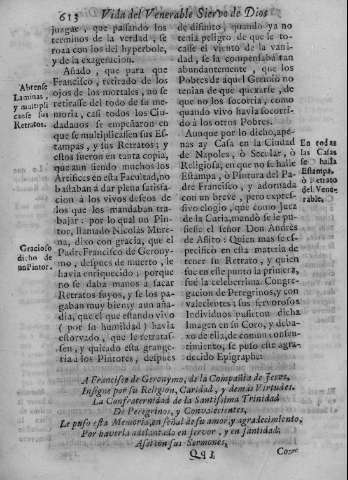 613 Vida del Venerable Siervo de Dios
juzgar, que passando los
terminos de la verdad, se
roza con los del hyperbole,
y de la exageracion.
Añado, que para que
Francisco, retirado de los
ojos de los mortales, no se
retirasse del todo de su me
moria, casi todos los Ciu-
dadanos se empeñaron en
que se multiplicassen sus Es-
tampas, y sus Retratos; y
estos fueron en tanta copia,
que aun siendo muchos los
Artifices en esta Facultad, no
bastaban à dar plena satisfa-
cion à los vivos deseos de
los que los mandaban tra-
bajar: por lo qual un Pin-
tor, llamado Nicolàs Mure-
na, dixo con gracia, que el
Padre Francisco de Gerony-
mo, despues de muerto, le
havia enriquecido; porque
no se daba manos à sacar
Retratos suyos, y se los pa-
gaban muy bien: y aun aña-
dia, que el que estando vivo
(por su humildad) havia
estorvado, que le retratas-
sen, y quitado esta grange-
ria à los Pintores, despues
Abrense
Laminas,
y multipli
canse sus
Retratos.
Gracioso
dicho de
un Pintor.
de difunto, quando ya no
tenia peligro de que le to-
casse el viento de la vani-
dad, se la compensaba tan
abundantemente, que los
Pobres de aquel Gremio no
tenian de que quexarse, de
que no los socorria, como
quando vivo havia socorri-
do à los otros Pobres.
Aunque por lo dicho, ape-
nas ay Casa en la Ciudad
de Napoles, ò Secular, ò
Religiosa, en que no se halle
Estampa, ò Pintura del Pa-
dre Francisco, y adornada
con un breve, pero expres-
sivo elogio, que como Juez
de la Curia, mandò se le pu-
siesse el señor Don Andrès
de Aflito: Quien mas se es-
pecificò en esta materia de
tener su Retrato, y quien
fue en este punto la primera,
fue la celeberrima Congre-
gacion de Peregrinos, y con
valecientes: sus fervorosos
Individuos pusieron dicha
Imagen en su Coro, y deba-
xo de ella, de comun consen-
timiento, se puso este agra-
decido Epigraphe:
En todas
las Casas
se halla
Estampa,
ò Retrato
del Vene-
rable.
A Francisco de Geronymo, de la Compañia de Jesus,
Insigne por su Religion, Caridad, y demàs Virtudes.
La Confraternidad de la Santissima Trinidad
De Peregrinos, y Convalecientes,
Le puso esta Memoria, en señal de su amor, y agradecimiento,
Por haverla adelantado en fervor, y en santidad,
Assi con sus Sermones,